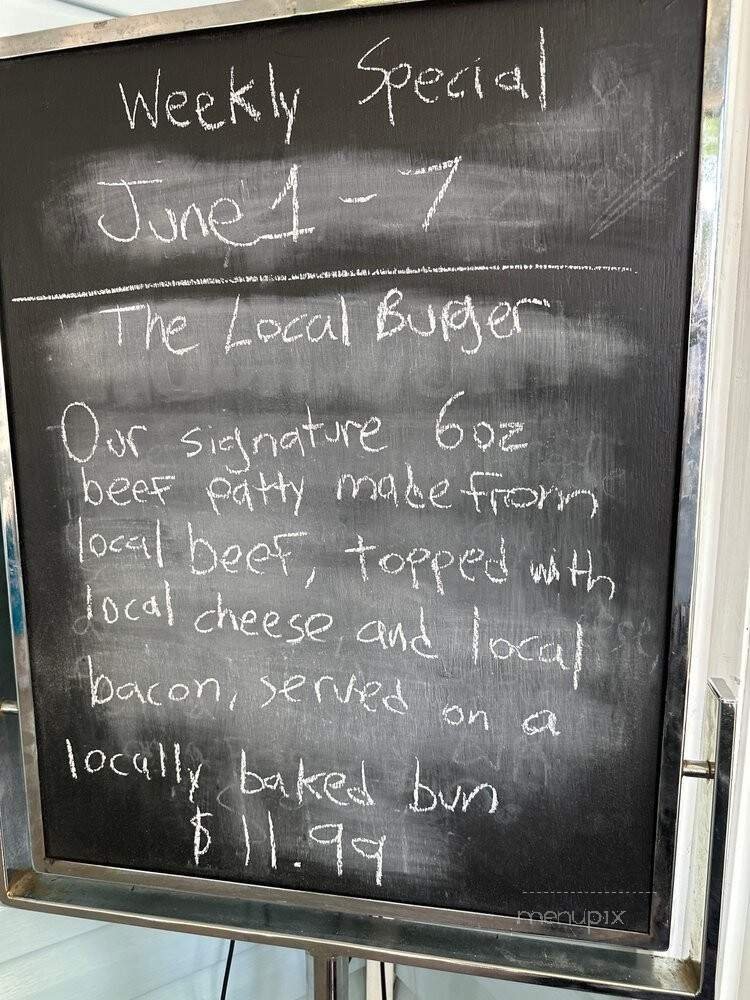 Weekly Special
June 1 - 7
The Local Burger
Our signature 6oz
beef patty made from
local beef, topped with
local cheese and local
bacon, served on a
locally baked bun
$11.99
menupix